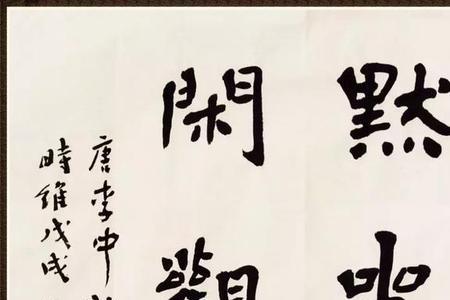 默
閑觀
唐李中
時維戊戌